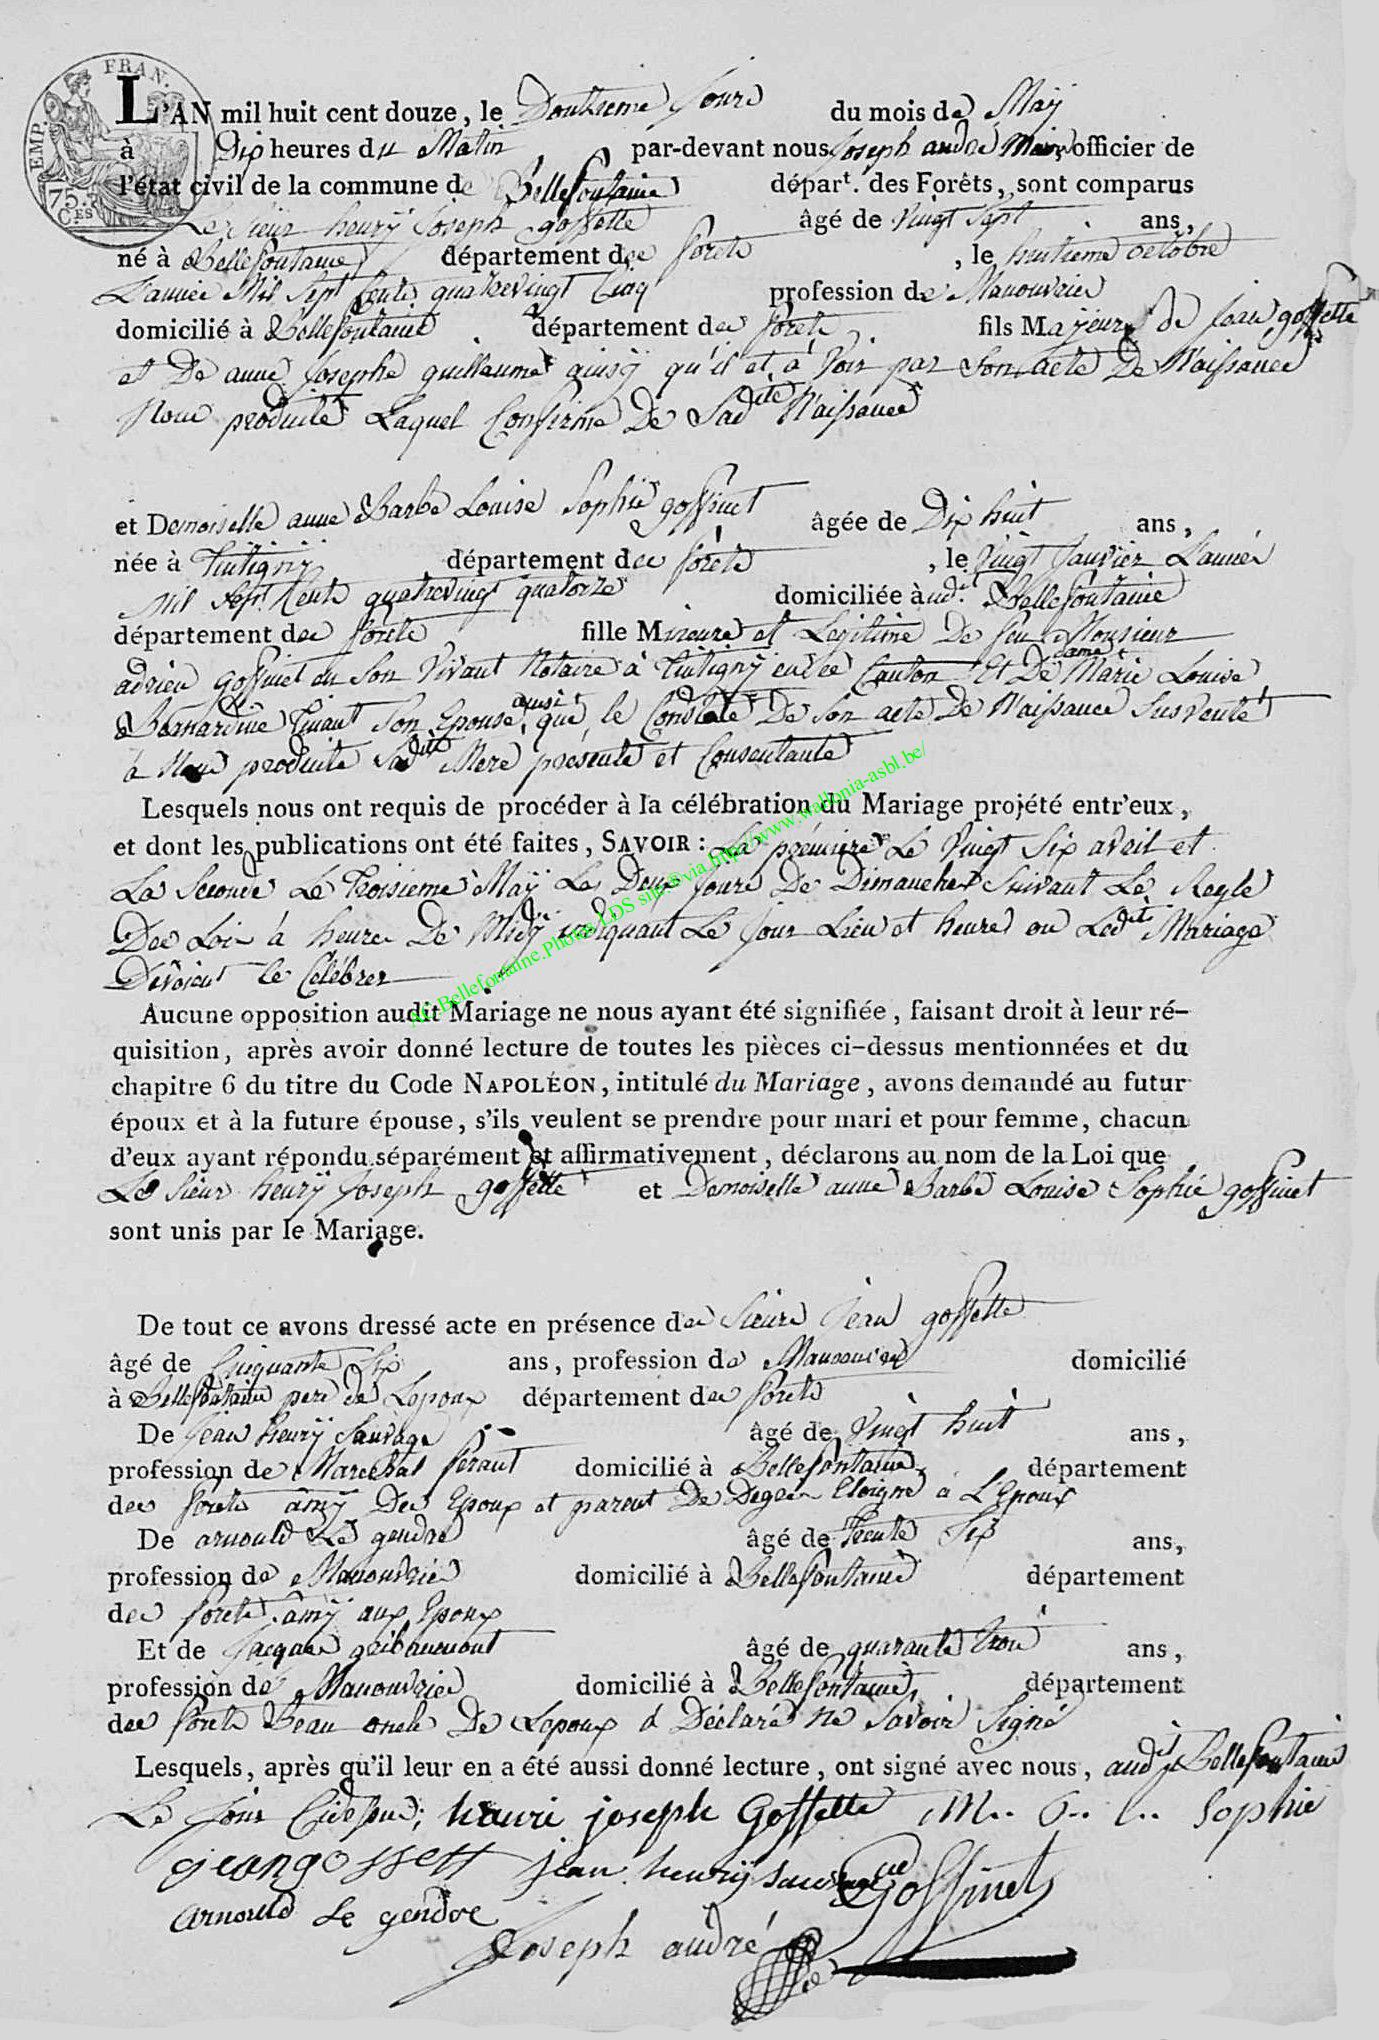 EMP. FRAN.
75. C.ES
L'AN mil huit cent douze, le Douzieme Jour du mois de Maÿ
à Dix heures du Matin par-devant nous Joseph andre Maire officier de
l'état civil de la commune de Bellefontaine départ. des Forêts, sont comparus
Le Sieur henrÿ Joseph goffette âgé de Vingt Sept ans,
né à Bellefontaine département des forets, le huitieme octobre
L'année Mil Sept Cents quatrevingt Cinq profession de Manouvrier
domicilié à Bellefontaine département des forets fils Majeur de Jean goffette
et De anne Josephe guillaume ainsÿ qu'il et à Voir par Son acte De Naissance
Nous produite Laquel Confirme De Sadite Naissance
et Demoiselle anne Barbe Louise Sophie goffinet âgée de Dix huit ans,
née à Tintigny département des forêts, le Vingt Janvier L'année
Mil Sept Cents quatrevingt quatorze domiciliée àud.t Bellefontaine
département des forets fille Mineure et Legitime De feu Monsieur
adrien goffinet en Son Vivant Notaire à Tintignÿ en ce Canton Et De dame Marie Louise
Bernardine Tinant Son Epouse ainsi que le Constate De Son acte De Naissance Susventé
à Nous produite Sadite Mere presente et Consentante
Lesquels nous ont requis de procéder à la célébration du Mariage projété entr'eux,
et dont les publications ont été faites, SAVOIR: La premiere Le Vingt Six avril et
La Seconde Le Troisieme Maÿ Les Deux Jours De Dimanches Suivant Le Regle
Des Loix à heure De Midÿ indiquant Le Jour Lieu et heure ou Ledit Mariage
Devoient le Célébrer
AC.Bellefontaine.Photos LDS site © via http://www.wallonia-asbl.be/
Aucune opposition audit Mariage ne nous ayant été signifiée, faisant droit à leur ré-
quisition, après avoir donné lecture de toutes les pièces ci-dessus mentionnées et du
chapitre 6 du titre du Code NAPOLÉON, intitulé du Mariage, avons demandé au futur
époux et à la future épouse, s'ils veulent se prendre pour mari et pour femme, chacun
d'eux ayant répondu séparément et affirmativement, déclarons au nom de la Loi que
Le Sieur henrÿ Joseph goffette et Demoiselle anne Barbe Louise Sophie goffinet
sont unis par le Mariage.
De tout ce avons dressé acte en présence des Sieurs Jean goffette
âgé de Cinquante Six ans, profession de Manouvrier domicilié
à Bellefontaine pere de Lepoux département des forets
De Jean henrÿ Sauvage âgé de Vingt huit ans,
profession de Marechal feraut domicilié à Bellefontaine département
des forets âmÿ Des Epoux et parent De Degrez Eloigné à L'Epoux
De arnould Le gendre âgé de Trente Six ans,
profession de Manouvrier domicilié à Bellefontaine département
des forets âmÿ aux Epoux
Et de Jacques gribaumont âgé de quarante trois ans,
profession de Manouvrier domicilié à Bellefontaine département
des forets Beau oncle De Lepoux à Déclaré ne Savoir Signé
Lesquels, après qu'il leur en a été aussi donné lecture, ont signé avec nous, audit Bellefontaine
Le Jour Cidessus; henri joseph Goffette M.. G.. L.. Sophie
jeangossett jean henrÿ sauvage Goffinet
Arnould Le gendre
Joseph andré